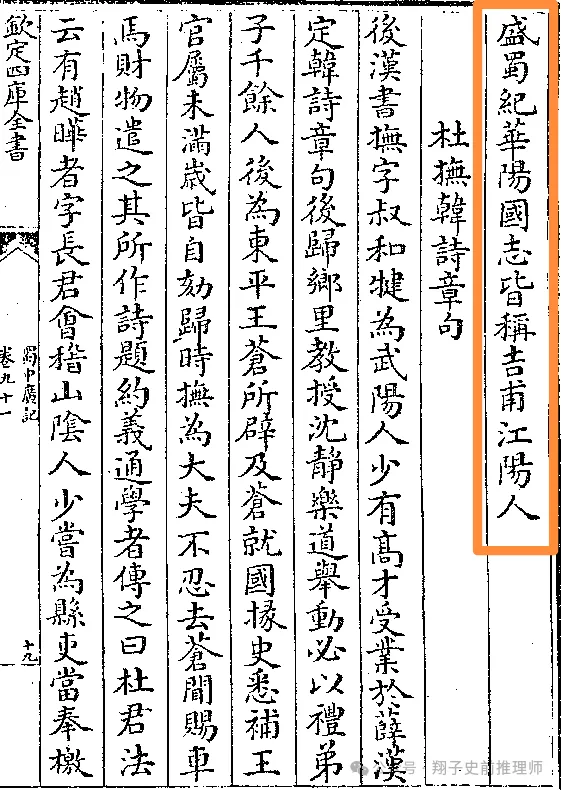 盛蜀紀華陽國志皆稱吉甫江陽人
杜撫韓詩章句
後漢書撫字叔和犍為武陽人少有髙才受業於薛漢
定韓詩章句後歸鄉里教授沈靜樂道舉動必以禮弟
子千餘人後為東平王蒼所辟及蒼就國掾史悉補王
官屬未滿歲皆自劾歸時撫為大夫不忍去蒼聞賜車
馬財物遣之其所作詩題約義通學者傳之曰杜君法
云有趙曄者字長君會稽山隂人少嘗為縣吏當奉檄
欽定四庫全書
蜀中廣記
卷九十一
十九
号·翔子史前推理师